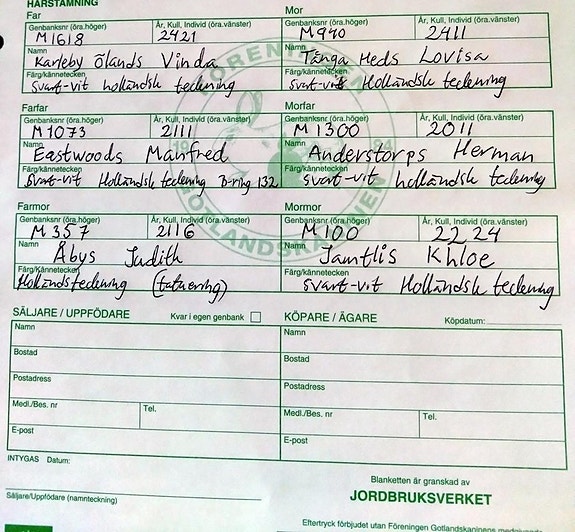 HÄRSTAMNING
Far
Genbanksnr (öra.höger) År, Kull, Individ (öra.vänster)
M1618 2421
Namn
Karleby Ölands Vinda
Färg/kännetecken
svart-vit holländsk teckning
Mor
Genbanksnr (öra.höger) År, Kull, Individ (öra.vänster)
M940 2411
Namn
Tånga Heds Lovisa
Färg/kännetecken
svart-vit Holländsk teckning
Farfar
Genbanksnr (öra.höger) År, Kull, Individ (öra.vänster)
M1073 2111
Namn
Eastwoods Manfred
Färg/Kännetecken
Svart-vit Holländsk teckning B-ring 132
Morfar
Genbanksnr (öra.höger) År, Kull, Individ (öra.vänster)
M1300 2011
Namn
Anderstorps Herman
Färg/kännetecken
svart-vit holländsk teckning
Farmor
Genbanksnr (öra.höger) År, Kull, Individ (öra.vänster)
M357 2116
Namn
Åbys Judith
Färg/Kännetecken
Holländsteckning (tatuering)
Mormor
Genbanksnr (öra.höger) År, Kull, Individ (öra.vänster)
M100 2224
Namn
Jamtlis Khloe
Färg/Kännetecken
svart-vit Holländsk teckning
FÖRENINGEN
GOTLANDSKANINEN
19 94
SÄLJARE / UPPFÖDARE Kvar i egen genbank
Namn
Bostad
Postadress
Medl./Bes. nr Tel.
E-post
KÖPARE / ÄGARE Köpdatum:
Namn
Bostad
Postadress
Medl./Bes. nr Tel.
E-post
INTYGAS Datum:
Säljare/Uppfödare (namnteckning)
Blanketten är granskad av
JORDBRUKSVERKET
Eftertryck förbjudet utan Föreningen Gotlandskaninens medgivande